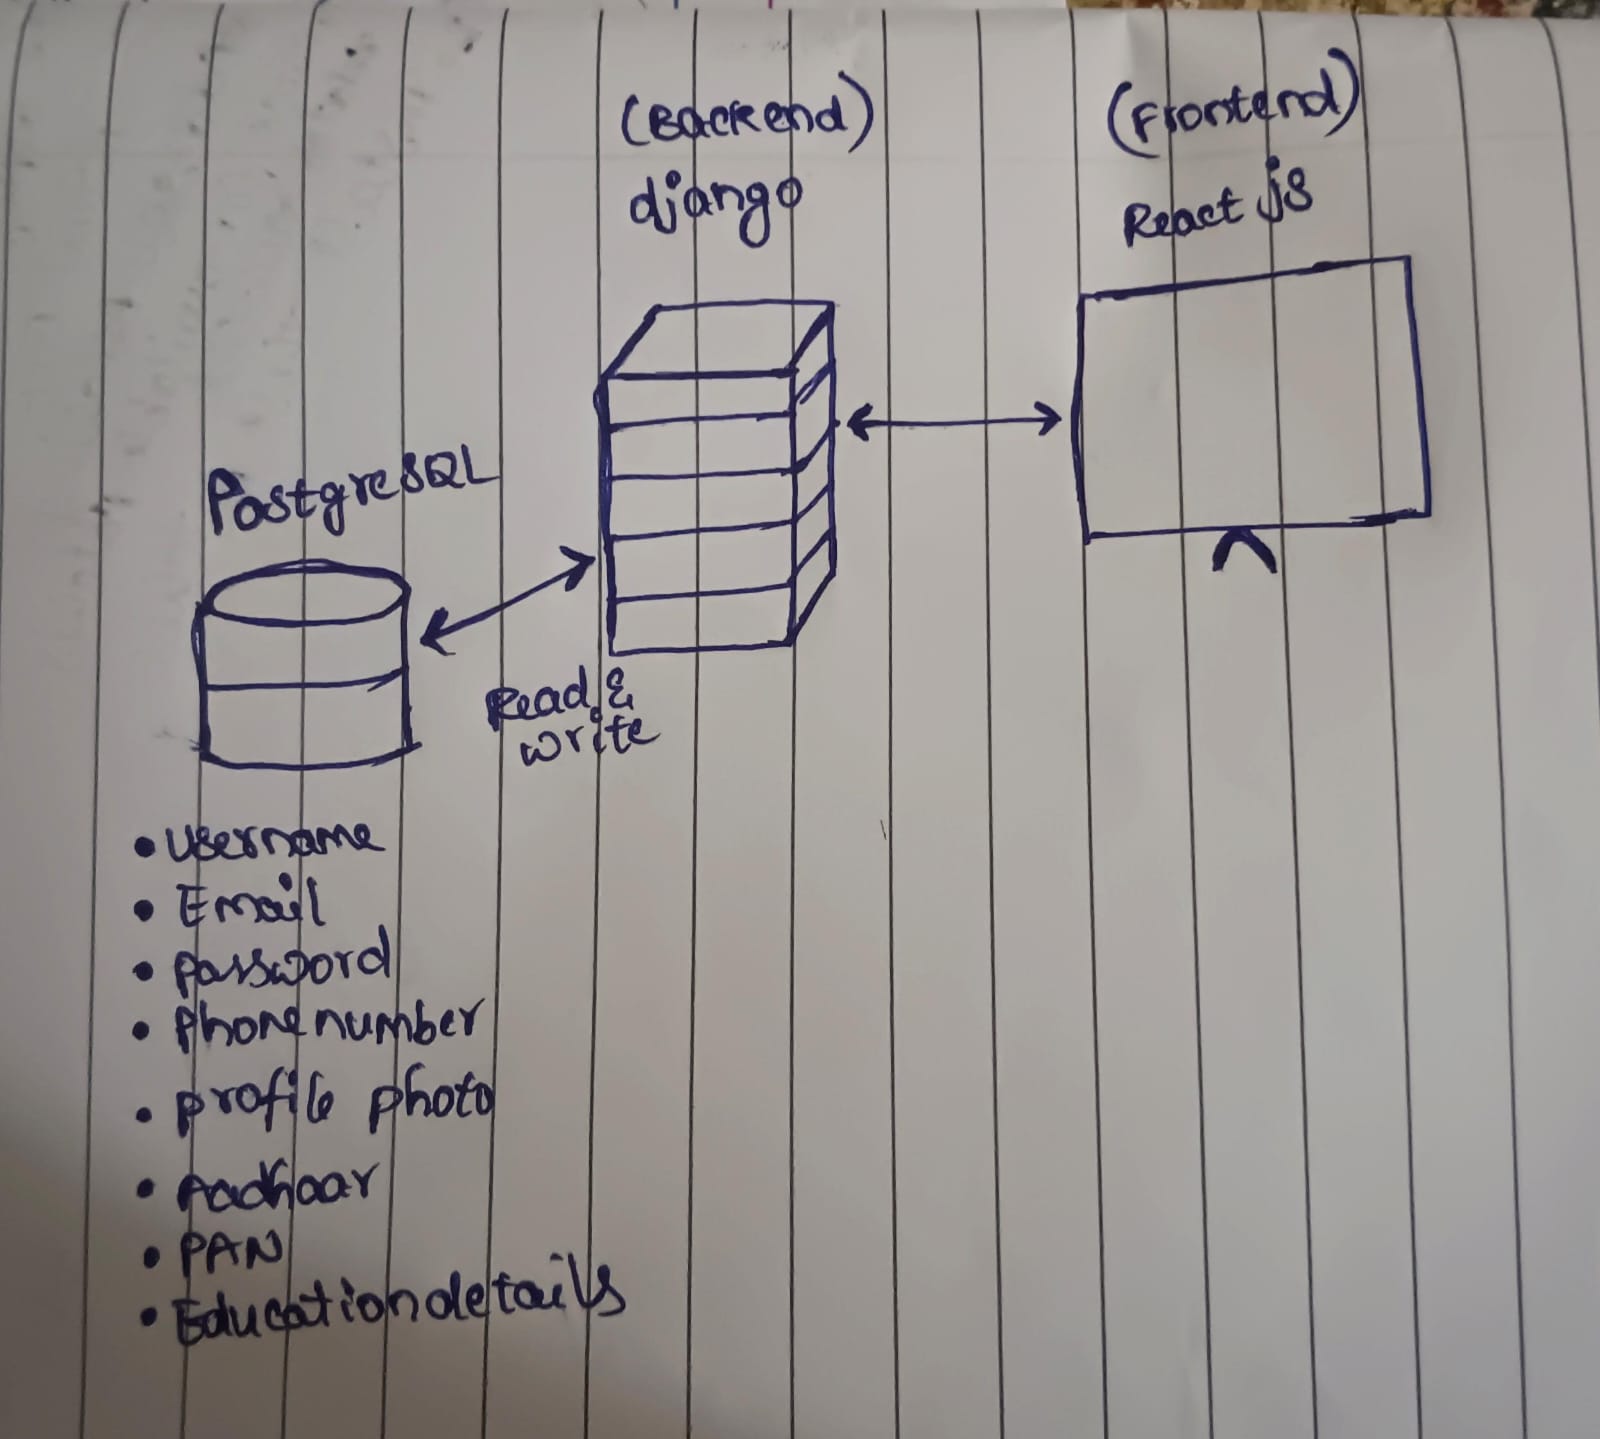 (Backend)
django
(Frontend)
React js
PostgreSQL
Read &
write
• username
• Email
• password
• phone number
• profile photo
• Aadhaar
• PAN
• Education details